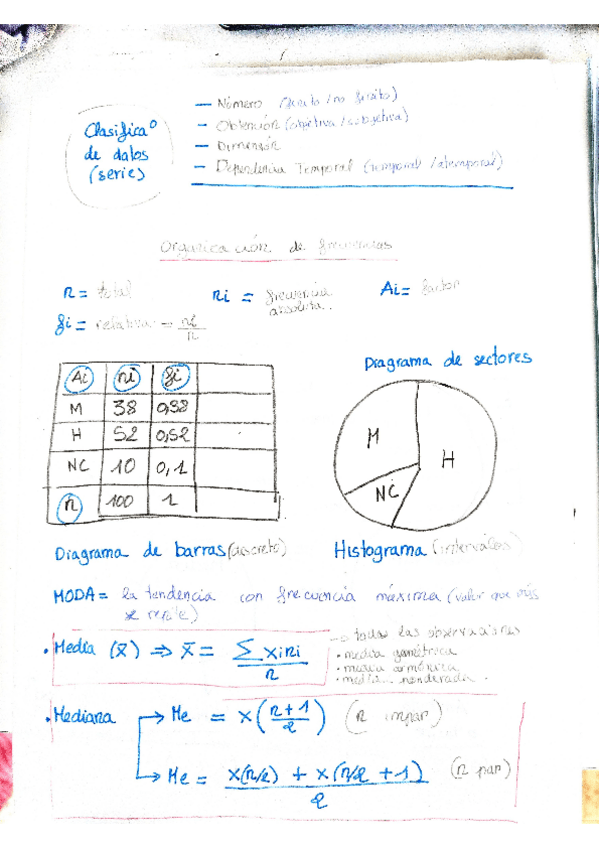 Clasificaº de datos (serie)
— Número (finito / no finito)
— Obtención (objetiva / subjetiva)
— Dimensión
— Dependencia Temporal (temporal / atemporal)
Organización de frecuencias
n = total
ni = frecuencia absoluta.
Ai = factor
fi = relativa = ni/n
Ai ni fi
M 38 0,38
H 52 0,52
NC 10 0,1
n 100 1
Diagrama de sectores
M
H
NC
Diagrama de barras (discreto)
Histograma (intervalos)
MODA = la tendencia con frecuencia máxima (valor que más
se repite)
• Media (x̄) ⇒ x̄ = Σ xi ni / n
→ todas las observaciones
• media geométrica
• media armónica
• media ponderada.
• Mediana → Me = x((n+1)/2) (n impar)
→ Me = (x(n/2) + x(n/2 + 1))/2 (n par)